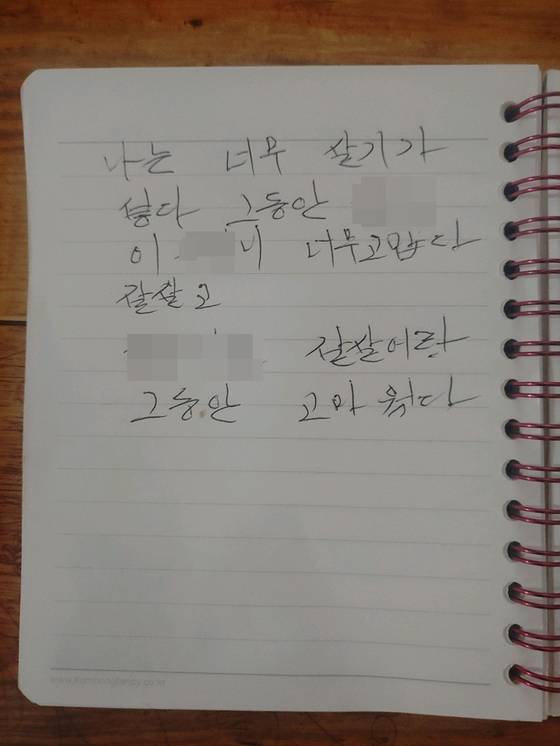 나는 너무 살기가
싫다 그동안
이 너무고맙다
잘살고
잘살어라
그동안 고마웠다